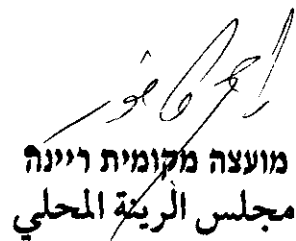 מועצה מקומית ריינה
مجلس الرينة المحلي